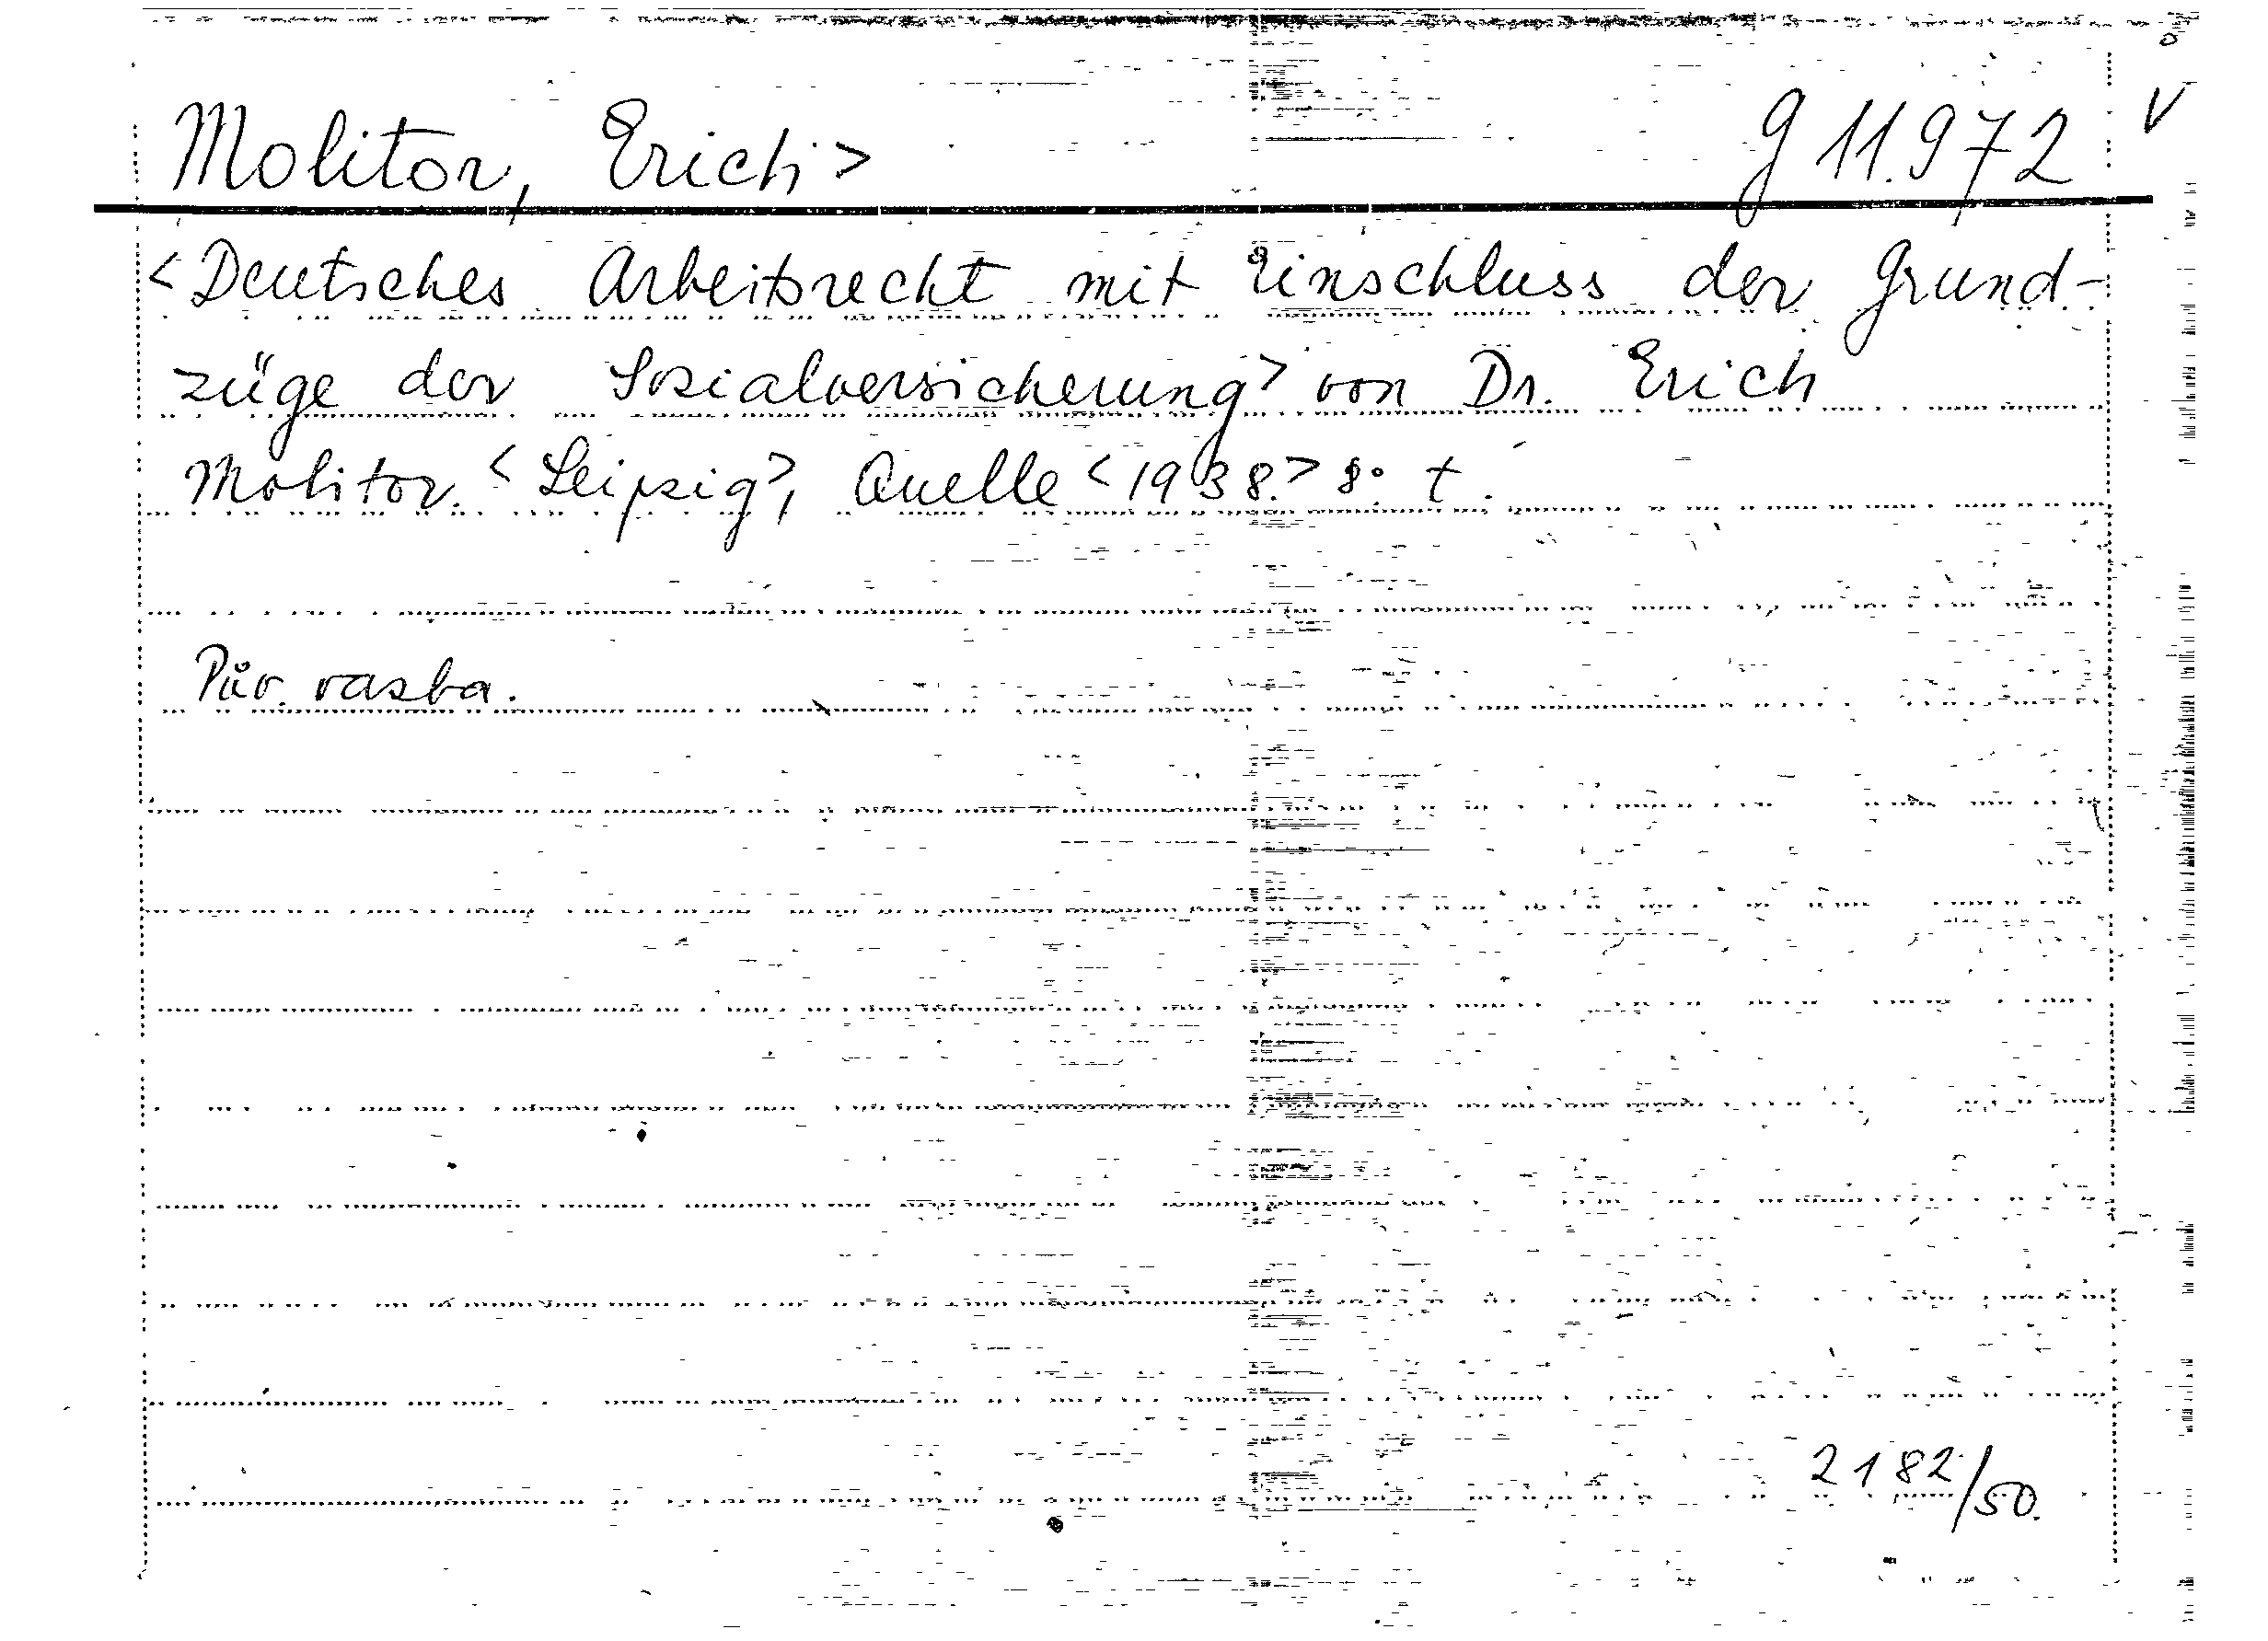 Molitor, Erich > g 11.972 V
<Deutsches Arbeitsrecht mit Einschluss der Grund-
züge der Sozialversicherung> von Dr. Erich
Molitor. <Leipzig>, Quelle <1938.> 8° t.
Pův. vazba.
2182/50.